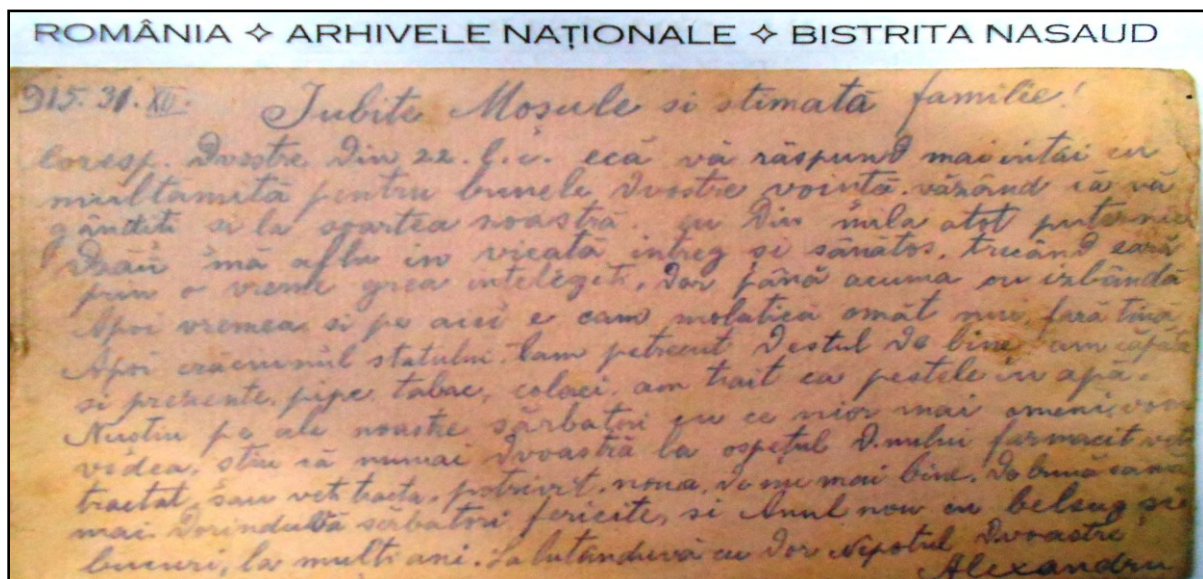 ROMÂNIA ✧ ARHIVELE NAȚIONALE ✧ BISTRITA NASAUD
915. 31. XII. Iubite Moșule si stimată familie!
Coresp. Dvostre Din 22. l. c. ecă vă răspund mai intâi cu
multămită pentru bunele Dvostre vointă. văzând că vă
gânditi si la soartea noastră. eu Din mila atot puternic
mă aflu in vieată intreg si sănătos. trecând eară
prin o vreme grea intelegeti. Dar până acuma cu izbândă
Apoi vremea si pe aici e cam molatică omăt nui fară tină
Apoi crăciunul statului lam petrecut Destul De bine am căpătat
si prezente. pipe tabac, colaci am trait ca pestele in apă.
Nustiu pe ale noastre sărbatori cu ce nior mai omeni, vom
videa. stiu că numai Dvoastră la ospețul D.nului farmacist veti
tractat, sau veti tracta. potrivit. noua. De nu mai bine. De bună samă
mai. Dorinduvă sărbatori fericite, si Anul nou cu belsug si
bucuri, la multi ani. Salutânduvă cu Dor Nepotul Dvoastră
Alexandru